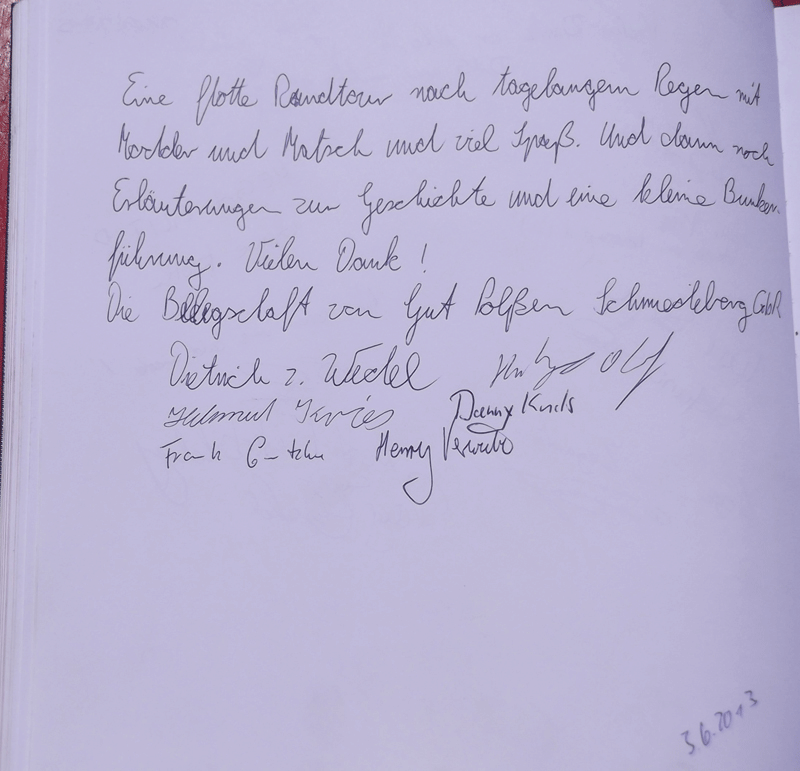 Eine flotte Rundtour nach tagelangem Regen mit
Modder und Matsch und viel Spaß. Und dann noch
Erläuterungen zur Geschichte und eine kleine Bunker-
führung. Vielen Dank!
Die Belegschaft von Gut Polßen Schmiedeberg GbR
Dietrich v. Wedel
Helmut Danny
Frank Henry
3.6.2013